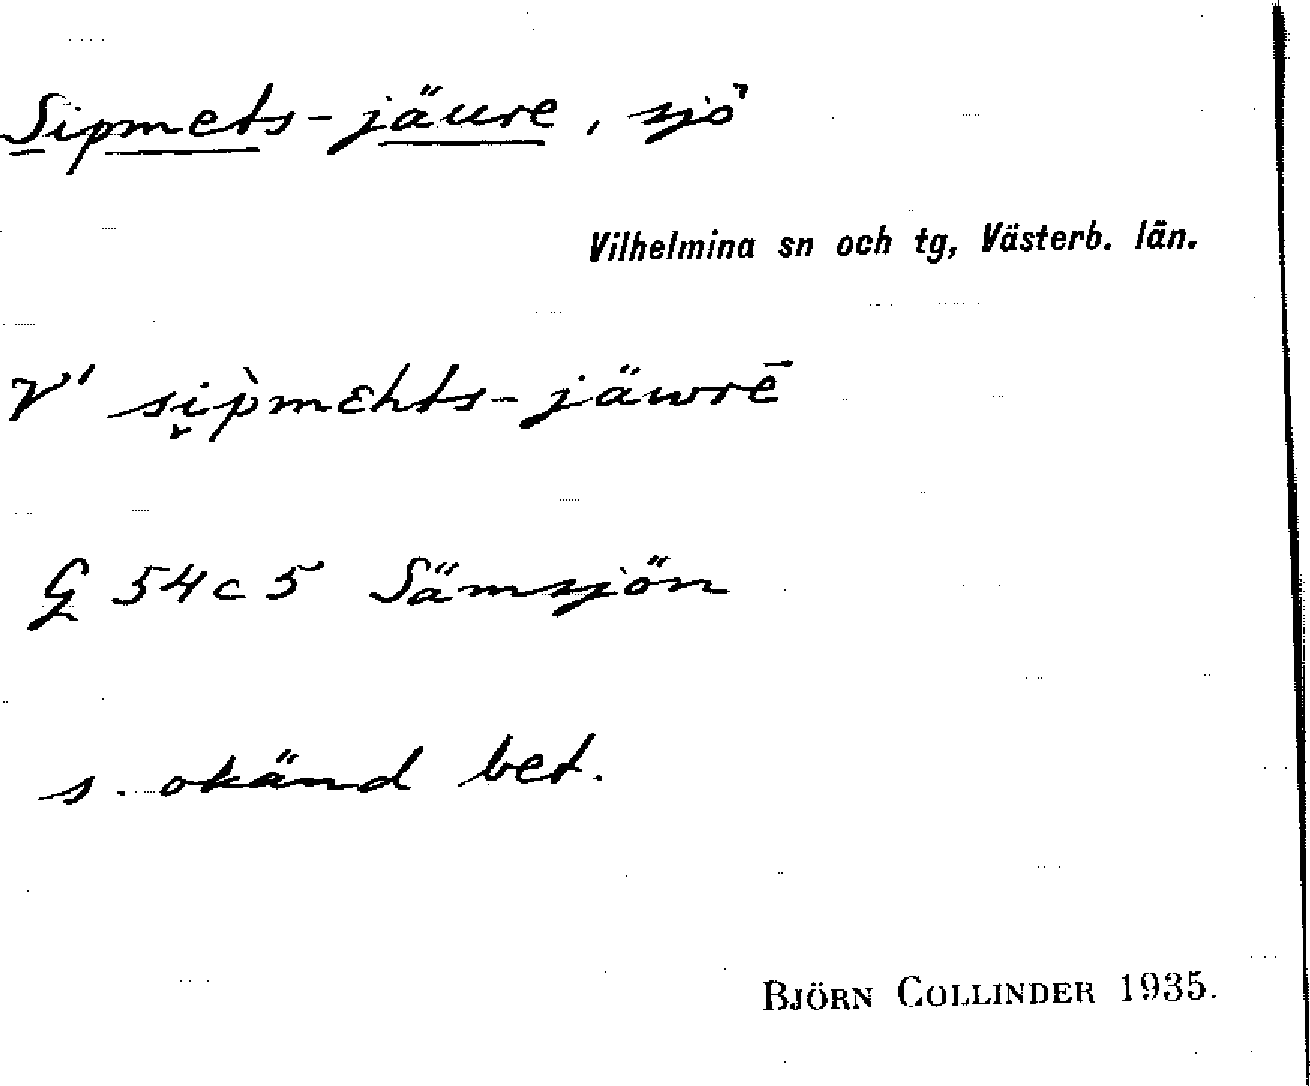 Sipmets-jäure, sjö
Vilhelmina sn och tg, Västerb. län.
V' si̬p̀mεhts-jäwrē
G 54 c 5 Sämsjön
s. okänd bet.
BJÖRN COLLINDER 1935.